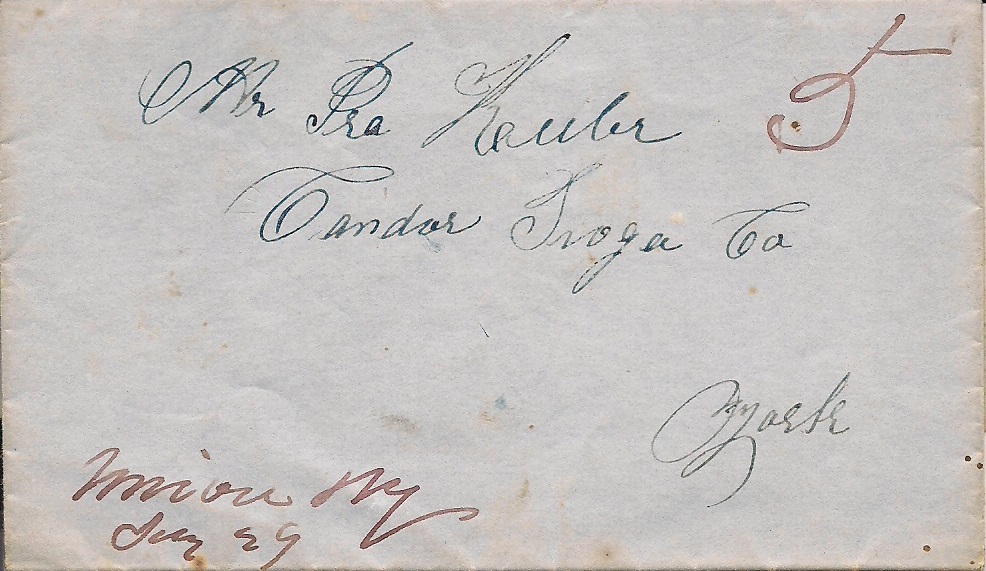 Mr Ira 5
Candor Tioga Co
N york
Union Ny
29